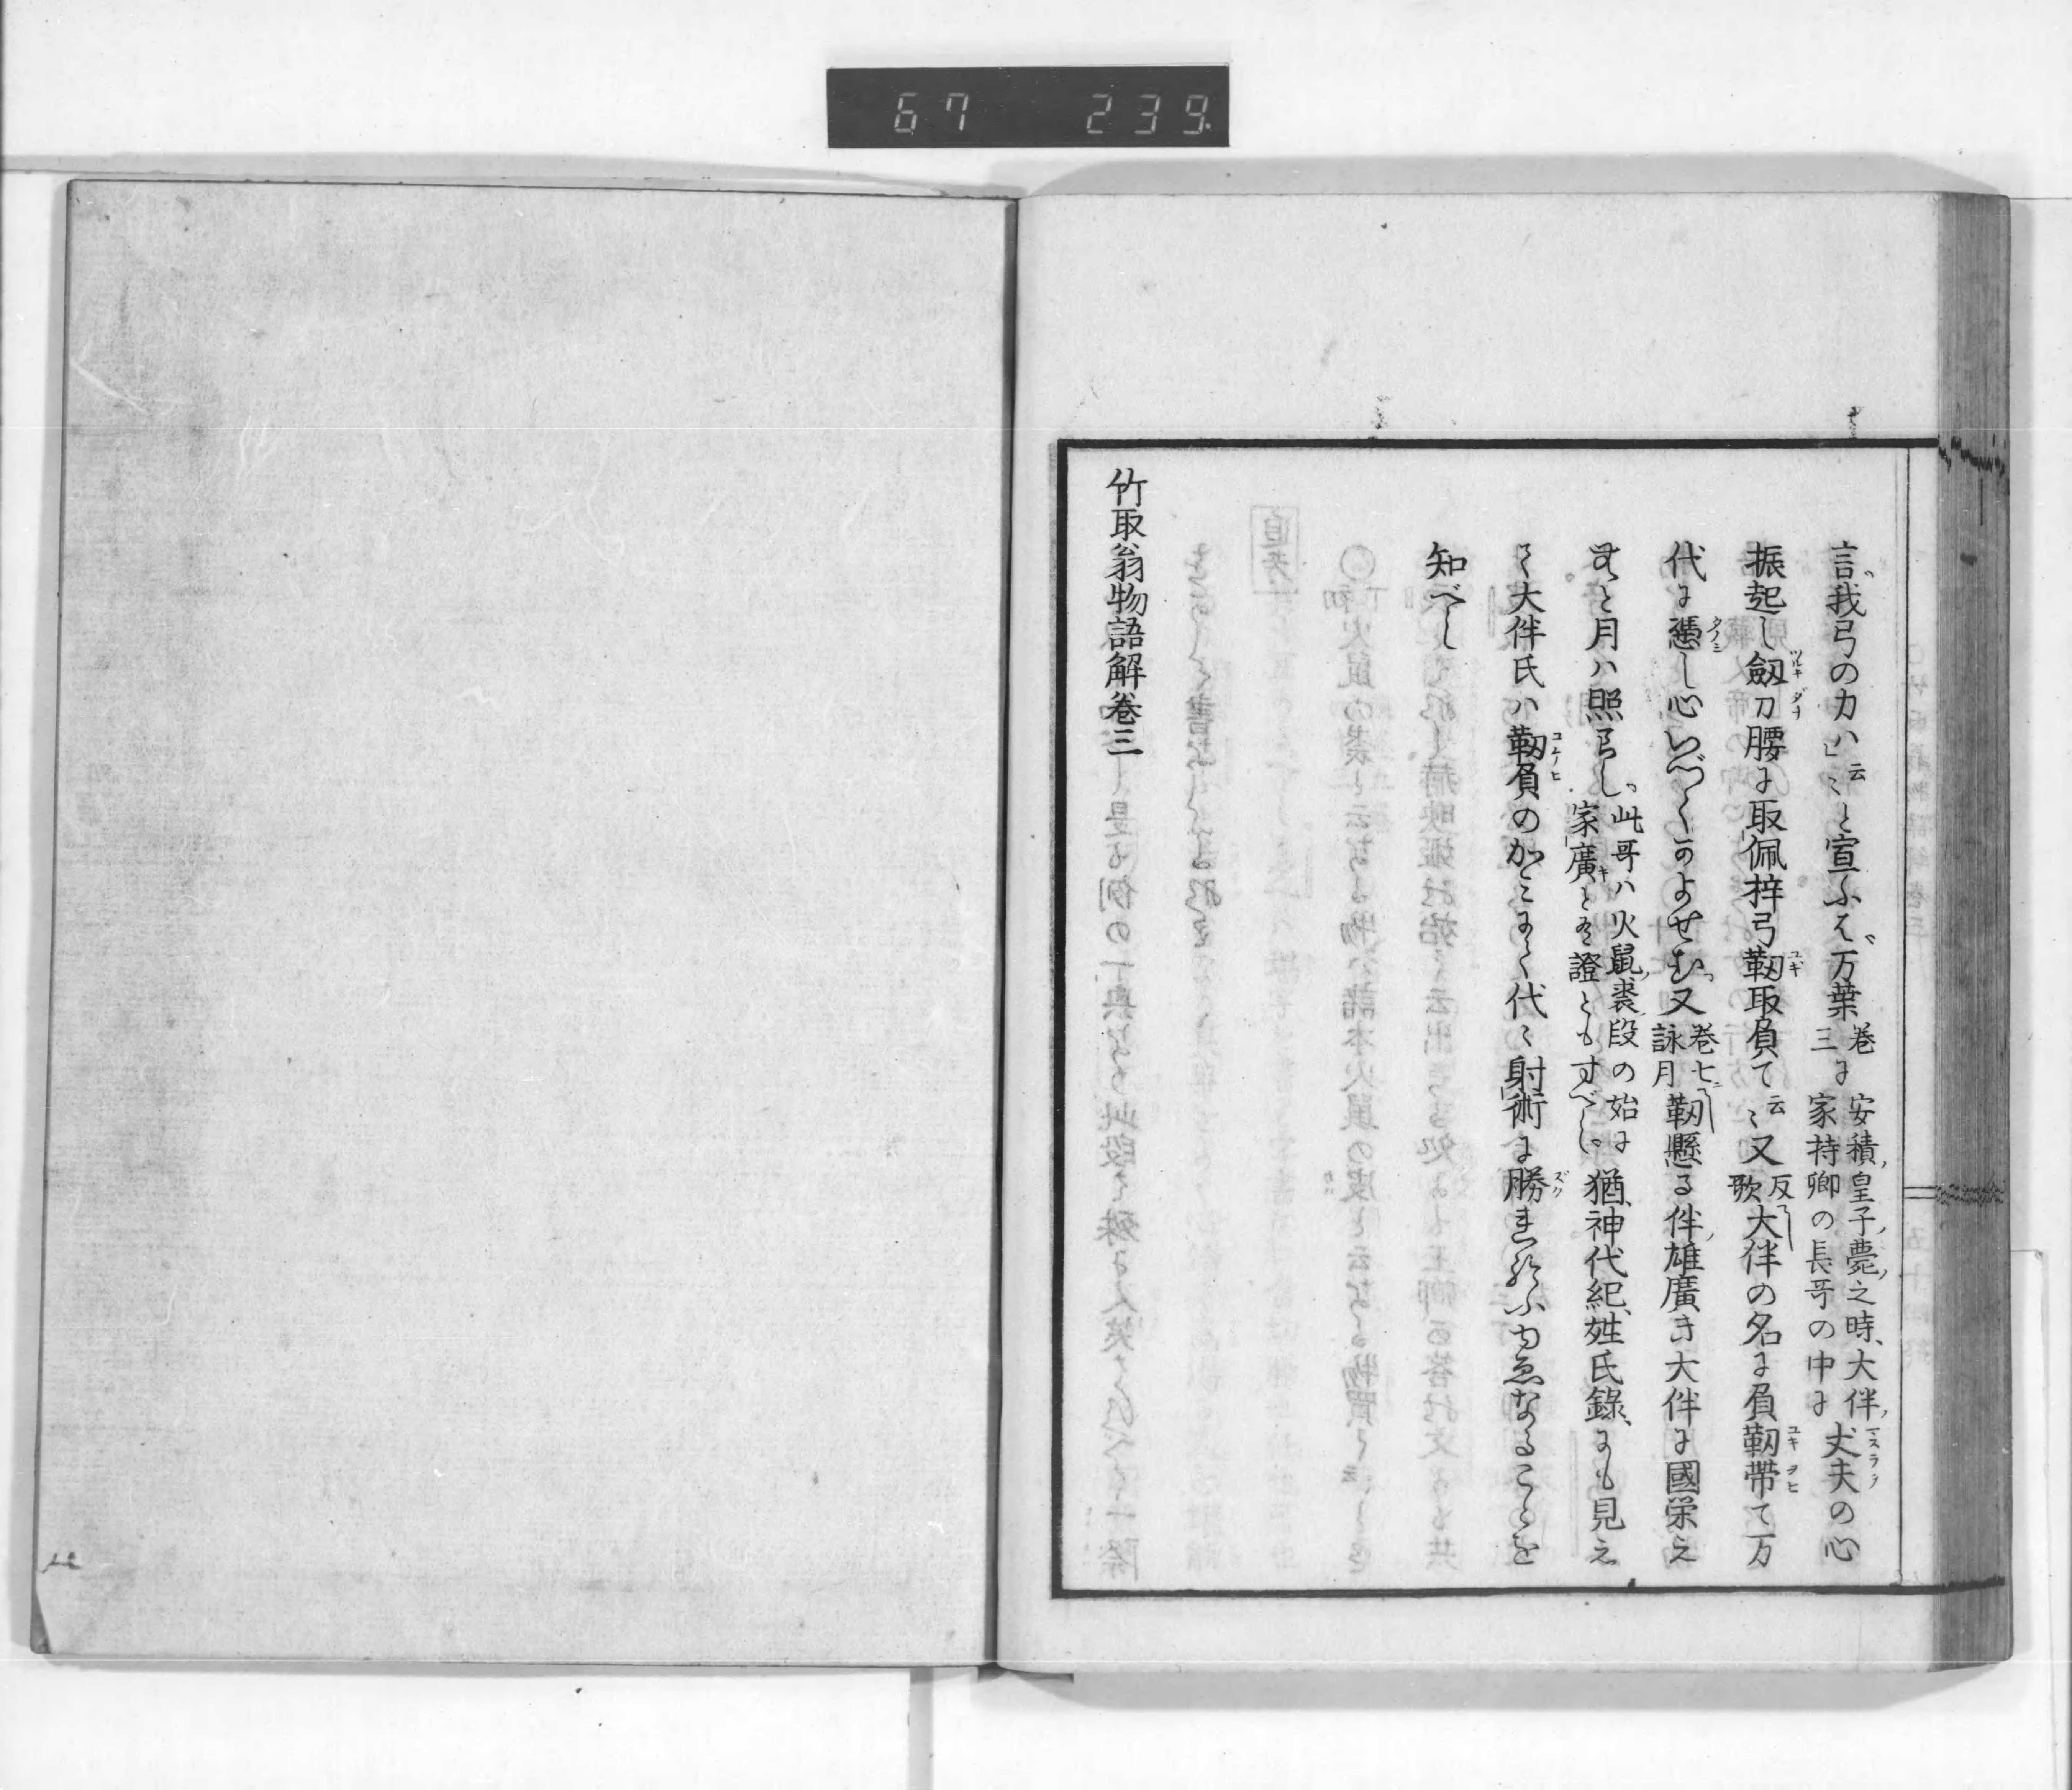 67 239
言我弓の力ハ云〻と宣ふは万葉巻三に安積皇子薨之時大伴家持卿の長哥の中に丈夫の心
振起し劔刀腰に取佩梓弓靱取負て云〻又反歌大伴の名に負靱帯て万
代に憑し心いづくかよせむ又巻七詠月靱懸る伴雄廣き大伴に國栄え
むと月ハ照らし此哥ハ火鼠裘段の始に家廣きとを證ともすべし猶神代紀姓氏録にも見え
て大伴氏ハ靱負のかみにて代〻射術に勝れ給ふゆゑなることを
知べし
竹取翁物語解巻三